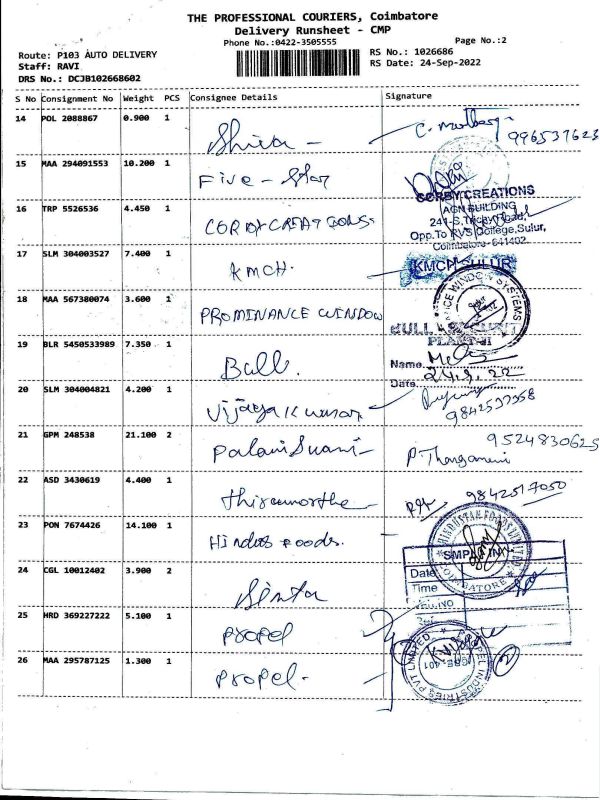 THE PROFESSIONAL COURIERS, Coimbatore
Delivery Runsheet - CMP
Phone No.:0422-3505555
Page No.:2
Route: P103 AUTO DELIVERY
Staff: RAVI
DRS No.: DCJB102668602
RS No.: 1026686
RS Date: 24-Sep-2022
S No Consignment No Weight PCS Consignee Details Signature
14 POL 2088867 0.900 1 Shiva -
996537623
15 MAA 294091553 10.200 1 Five - Star
16 TRP 5526536 4.450 1 CORBYCREATIONS.
CORBY CREATIONS
AGN BUILDING
241-S, Trichy Road,
Opp.To RVS College, Sulur,
Coimbatore- 641402.
17 SLM 304003527 7.400 1 KMCH.
KMCH-SULUR
18 MAA 567380074 3.600 1 PROMINANCE WINDOW
WINDOW SYSTEMS
19 BLR 5450533989 7.350 1 Bull.
BULL
PLANT-I
Name
Date 24.9.22
20 SLM 304004821 4.200 1 Vijayakumar
9842597358
21 GPM 248538 21.100 2 PalaniSwami-
9524830625
P. Thangamani
22 ASD 3430619 4.400 1 thiramorthe
9842517050
23 PON 7674426 14.100 1 Hindus Foods. -
HINDUSTAN FOODS LIMITED
COIMBATORE
24 CGL 10012402 3.900 2
Date
Time
25 HRD 369227222 5.100 1 Propel
26 MAA 295787125 1.300 1 Propel.
PROPEL INDUSTRIES PVT LIMITED
2